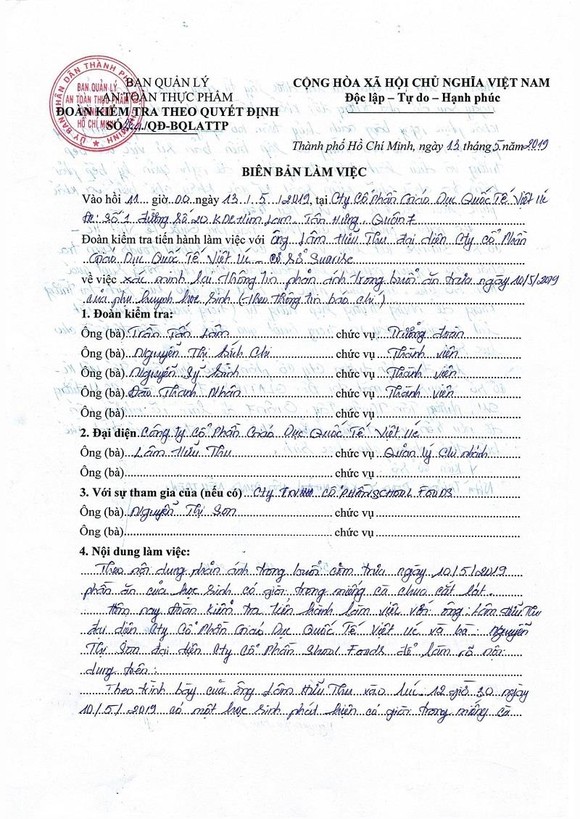 ỦY BAN NHÂN DÂN THÀNH PHỐ HỒ CHÍ MINH
BAN QUẢN LÝ
AN TOÀN THỰC PHẨM
BAN QUẢN LÝ
AN TOÀN THỰC PHẨM
ĐOÀN KIỂM TRA THEO QUYẾT ĐỊNH
SỐ /QĐ-BQLATTP
CỘNG HÒA XÃ HỘI CHỦ NGHĨA VIỆT NAM
Độc lập – Tự do – Hạnh phúc
Thành phố Hồ Chí Minh, ngày 13 tháng 5 năm 2019
BIÊN BẢN LÀM VIỆC
Vào hồi 11 giờ 00 ngày 13/5/2019, tại Cty Cổ Phần Giáo Dục Quốc Tế Việt Úc
Đc: Số 1 đường Số 20 KDC Him Lam Tân Hưng, Quận 7
Đoàn kiểm tra tiến hành làm việc với ông Lâm Hữu Thu đại diện Cty cổ Phần
Giáo Dục Quốc Tế Việt Úc – Cơ Sở Sunrise
về việc xác minh lại thông tin phản ánh trong buổi ăn trưa ngày 10/5/2019
của phụ huynh học sinh (Theo thông tin báo chí)
1. Đoàn kiểm tra:
Ông (bà) Trần Tấn Lâm chức vụ Trưởng đoàn
Ông (bà) Nguyễn Thị Bích Chi chức vụ Thành viên
Ông (bà) Nguyễn Sỹ chức vụ Thành viên
Ông (bà) Đào Thanh Nhân chức vụ Thành viên
Ông (bà) chức vụ
2. Đại diện Công ty Cổ Phần Giáo Dục Quốc Tế Việt Úc
Ông (bà) Lâm Hữu Thu chức vụ Quản lý chi nhánh
Ông (bà) chức vụ
3. Với sự tham gia của (nếu có) Cty Cổ PHẦN SCHOOL FOODS
Ông (bà) Nguyễn Thị Son chức vụ
Ông (bà) chức vụ
4. Nội dung làm việc:
Theo nội dung phản ánh trong buổi cơm trưa ngày 10/5/2019
phần ăn của học sinh có giòi trong miếng cà chua cắt lát.
Hôm nay Đoàn kiểm tra tiến hành làm việc với ông: Lâm Hữu Thu
đại diện Cty Cổ Phần Giáo Dục Quốc Tế Việt Úc và bà Nguyễn
Thị Son đại diện Cty Cổ Phần School Foods để làm rõ nội
dung trên:
Theo trình bày của ông Lâm Hữu Thu vào lúc 12 giờ 30 ngày
10/5/2019 có một học sinh phát hiện có giòi trong miếng cà